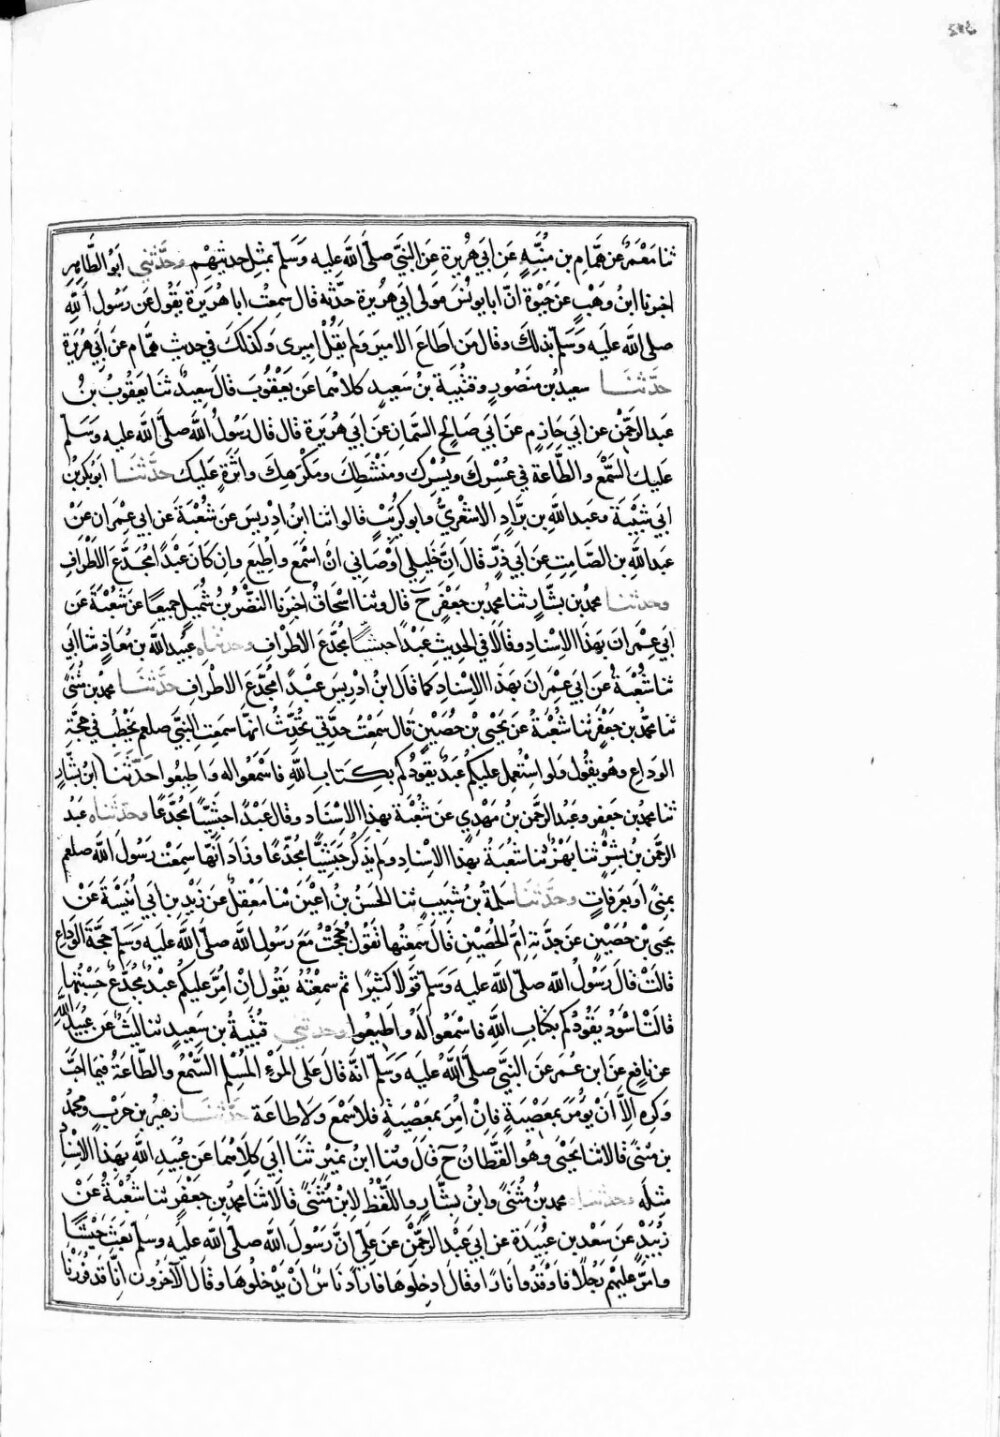 ثنا مَعْمَرٌ عن همام بن منبّهٍ عن ابي هُريرة عن النبيّ صلّى اللّه عليه وَسَلّم بمثل حديثهم وحدّثني ابو الطاهر
اخبرنا ابن وَهْبٍ عن حَيْوة انّ ابا يونس مولى ابي هريرة حدّثه قال سمعت ابا هريرة يقول عن رسول اللّه
صلى اللّه عليه وَسَلّم بذلك وقال من اطاع الامير ولم يقل اميرى وكذلك في حديث همّام عن ابي هريرة
حدّثنا سعيد بن منصور وقتيبة بن سعيد كلاهما عن يعقوب قال سعيدٌ ثنا يعقوب بن
عبد الرحمن عن ابي حازم عن ابي صالح السّمان عن ابي هريرة قال قال رسول اللّه صلّى اللّه عليه وَسَلّم
عليك السّمع والطّاعة في عُسرك ويُسرك ومَنْشَطك ومَكْرَهك واثرةٍ عليك حدّثنا ابو بكر بن
ابي شيبة وعبد اللّه بن برّاد الاشعريّ وابو كريب قالوا ثنا ابن ادريس عن شعبة عن ابي عمران عن
عبد اللّه بن الصّامت عن ابي ذرّ قال انّ خليلي اوصاني ان اسمع واطيع وان كان عبدًا مجدّع الاطراف
وحدثنا محمد بن بشّار ثنا محمد بن جعفر ح قال وثنا اسحاق اخبرنا النضر بن شُميل جميعا عن شعبة عن
ابي عمران بهذا الاسناد وقالا في الحديث عبدًا حبشيًّا مجدّع الاطراف وحدثناه عبيد اللّه بن معاذ ثنا ابي
ثنا شعبة عن ابي عمران بهذا الاسناد كما قال ابن ادريس عبدًا مجدّع الاطراف حدّثنا محمد بن مثنى
ثنا محمد بن جعفر ثنا شعبة عن يحيى بن حُصين قال سمعت جدّتي تحدّث انها سمعت النبيّ صلعم يخطب في حجّة
الوداع وهو يقول ولو استُعمل عليكم عبدٌ يقودكم بكتاب اللّه فاسمعوا له واطيعوا حدّثنا ابن بشّار
ثنا محمد بن جعفر وعبد الرحمن بن مهدي عن شعبة بهذا الاسناد وقال عبدًا حبشيًّا مجدّعا وحدثناه عبد
الرحمن بن بشر ثنا بهز ثنا شعبة بهذا الاسناد ولم يذكر حبشيًّا مجدّعا وزاد انّها سمعت رسول اللّه صلعم
بمنى او بعرفات وحدّثنا سلمة بن شبيب ثنا الحسن بن اعين ثنا معقل عن زيد بن ابي انيسة عن
يحيى بن حُصين عن جدّته امّ الحصين قال سمعتها تقول حججت مع رسول اللّه صلّى اللّه عليه وَسَلّم حجّة الوداع
قالت قال رسول اللّه صلّى اللّه عليه وَسَلّم قولا كثيرًا ثم سمعته يقول ان امّر عليكم عبدٌ مجدّع حسبتها
قالت اسود يقودكم بكتاب اللّه فاسمعوا له واطيعوا وحدثني قتيبة بن سعيد ثنا ليث عن عبيد اللّه
عن نافع عن ابن عمر عن النبيّ صلّى اللّه عليه وسلّم انّه قال على المرء المسلم السّمع والطاعة فيما احبّ
وكره الاّ ان يؤمر بمعصيةٍ فان امر بمعصيةٍ فلا سمع ولا طاعة حدّثنا زهير بن حرب ومحمد
بن مثنى قالا ثنا يحيى وهو القطان ح قال وثنا ابن نمير ثنا ابي كلاهما عن عبيد اللّه بهذا الاسناد
مثله وحدثنا محمد بن مثنى وابن بشّار واللفظ لابن مثنى قالا ثنا محمد بن جعفر ثنا شعبة عن
زبيد عن سعد بن عبيدة عن ابي عبد الرحمن عن علي انّ رسول اللّه صلّى اللّه عليه وسلّم بعث جيشًا
وامّر عليهم رجلًا فاوقدوا نارًا وقال ادخلوها فاراد ناسٌ ان يدخلوها وقال الآخرون انّا قد فررنا